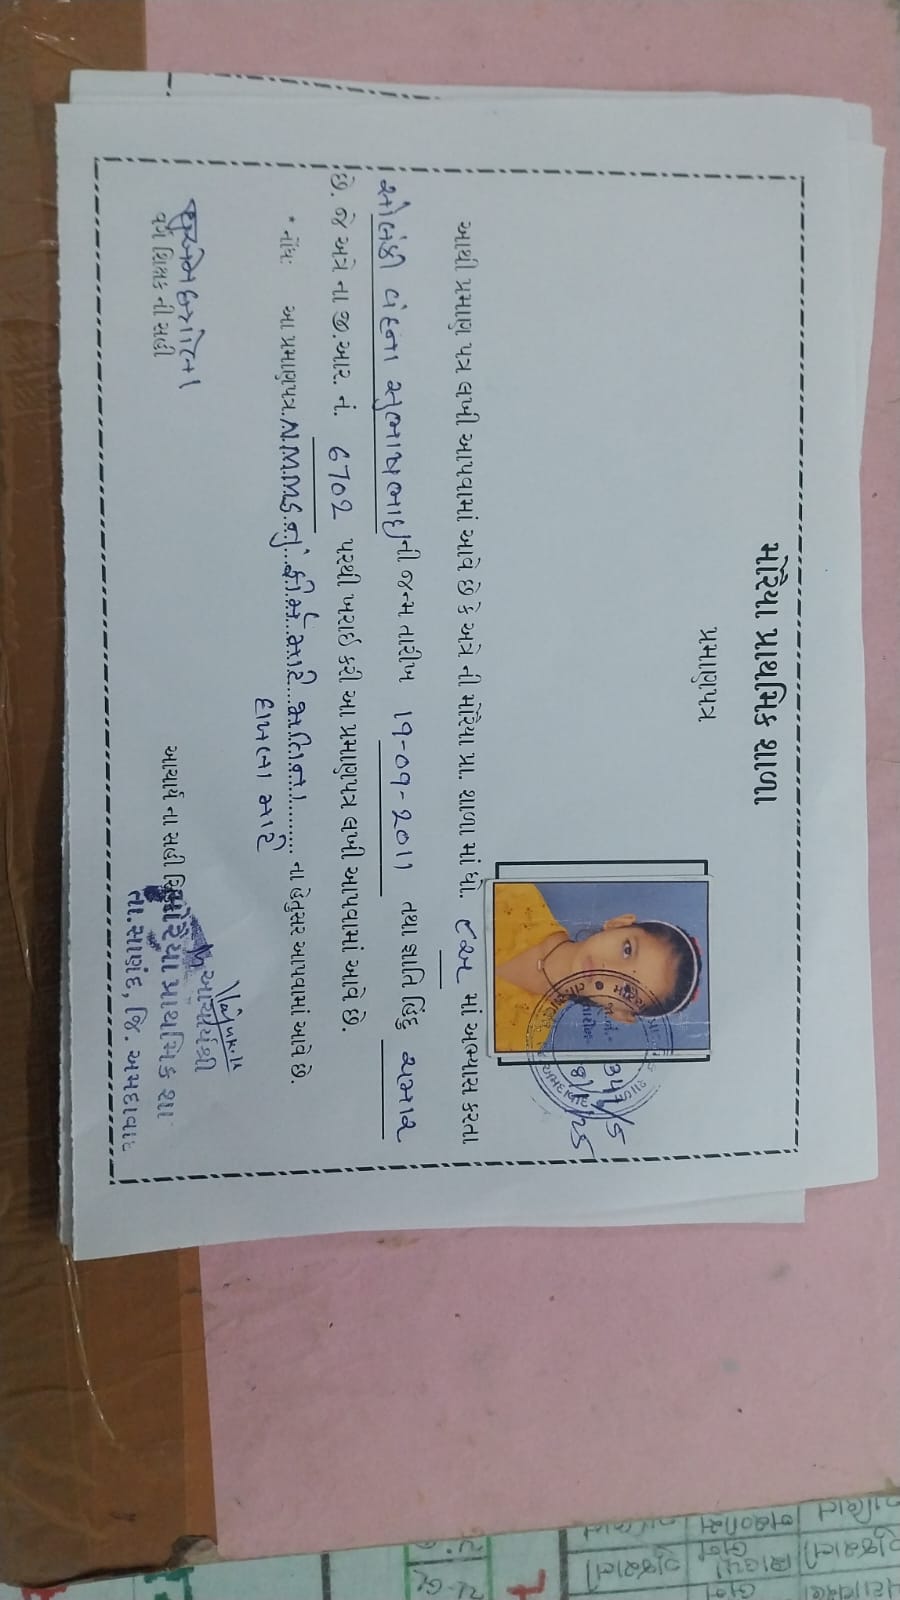 મોરૈયા પ્રાથમિક શાળા
પ્રમાણપત્ર
આથી પ્રમાણ પત્ર લખી આપવામાં આવે છે કે અત્રે ની મોરૈયા પ્રા. શાળા માં ધો. ૮ બ માં અભ્યાસ કરતા
સોલંકી વંદના સુભાષભાઇ ની જન્મ તારીખ 19-09-2011 તથા જ્ઞાતિ હિંદુ ચમાર
છે. જે અત્રે ના જી.આર. નં. 6702 પરથી ખરાઈ કરી આ પ્રમાણપત્ર લખી આપવામાં આવે છે.
* નોંધ: આ પ્રમાણપત્ર N.M.M.S નું ફોર્મ માટે જાતિના ના હેતુસર આપવામાં આવે છે.
દાખલા માટે
વર્ગ શિક્ષક ની સહી
આચાર્ય ના સહી
આચાર્યશ્રી
મોરૈયા પ્રાથમિક શા
તા.સાણંદ, જિ. અમદાવાદ